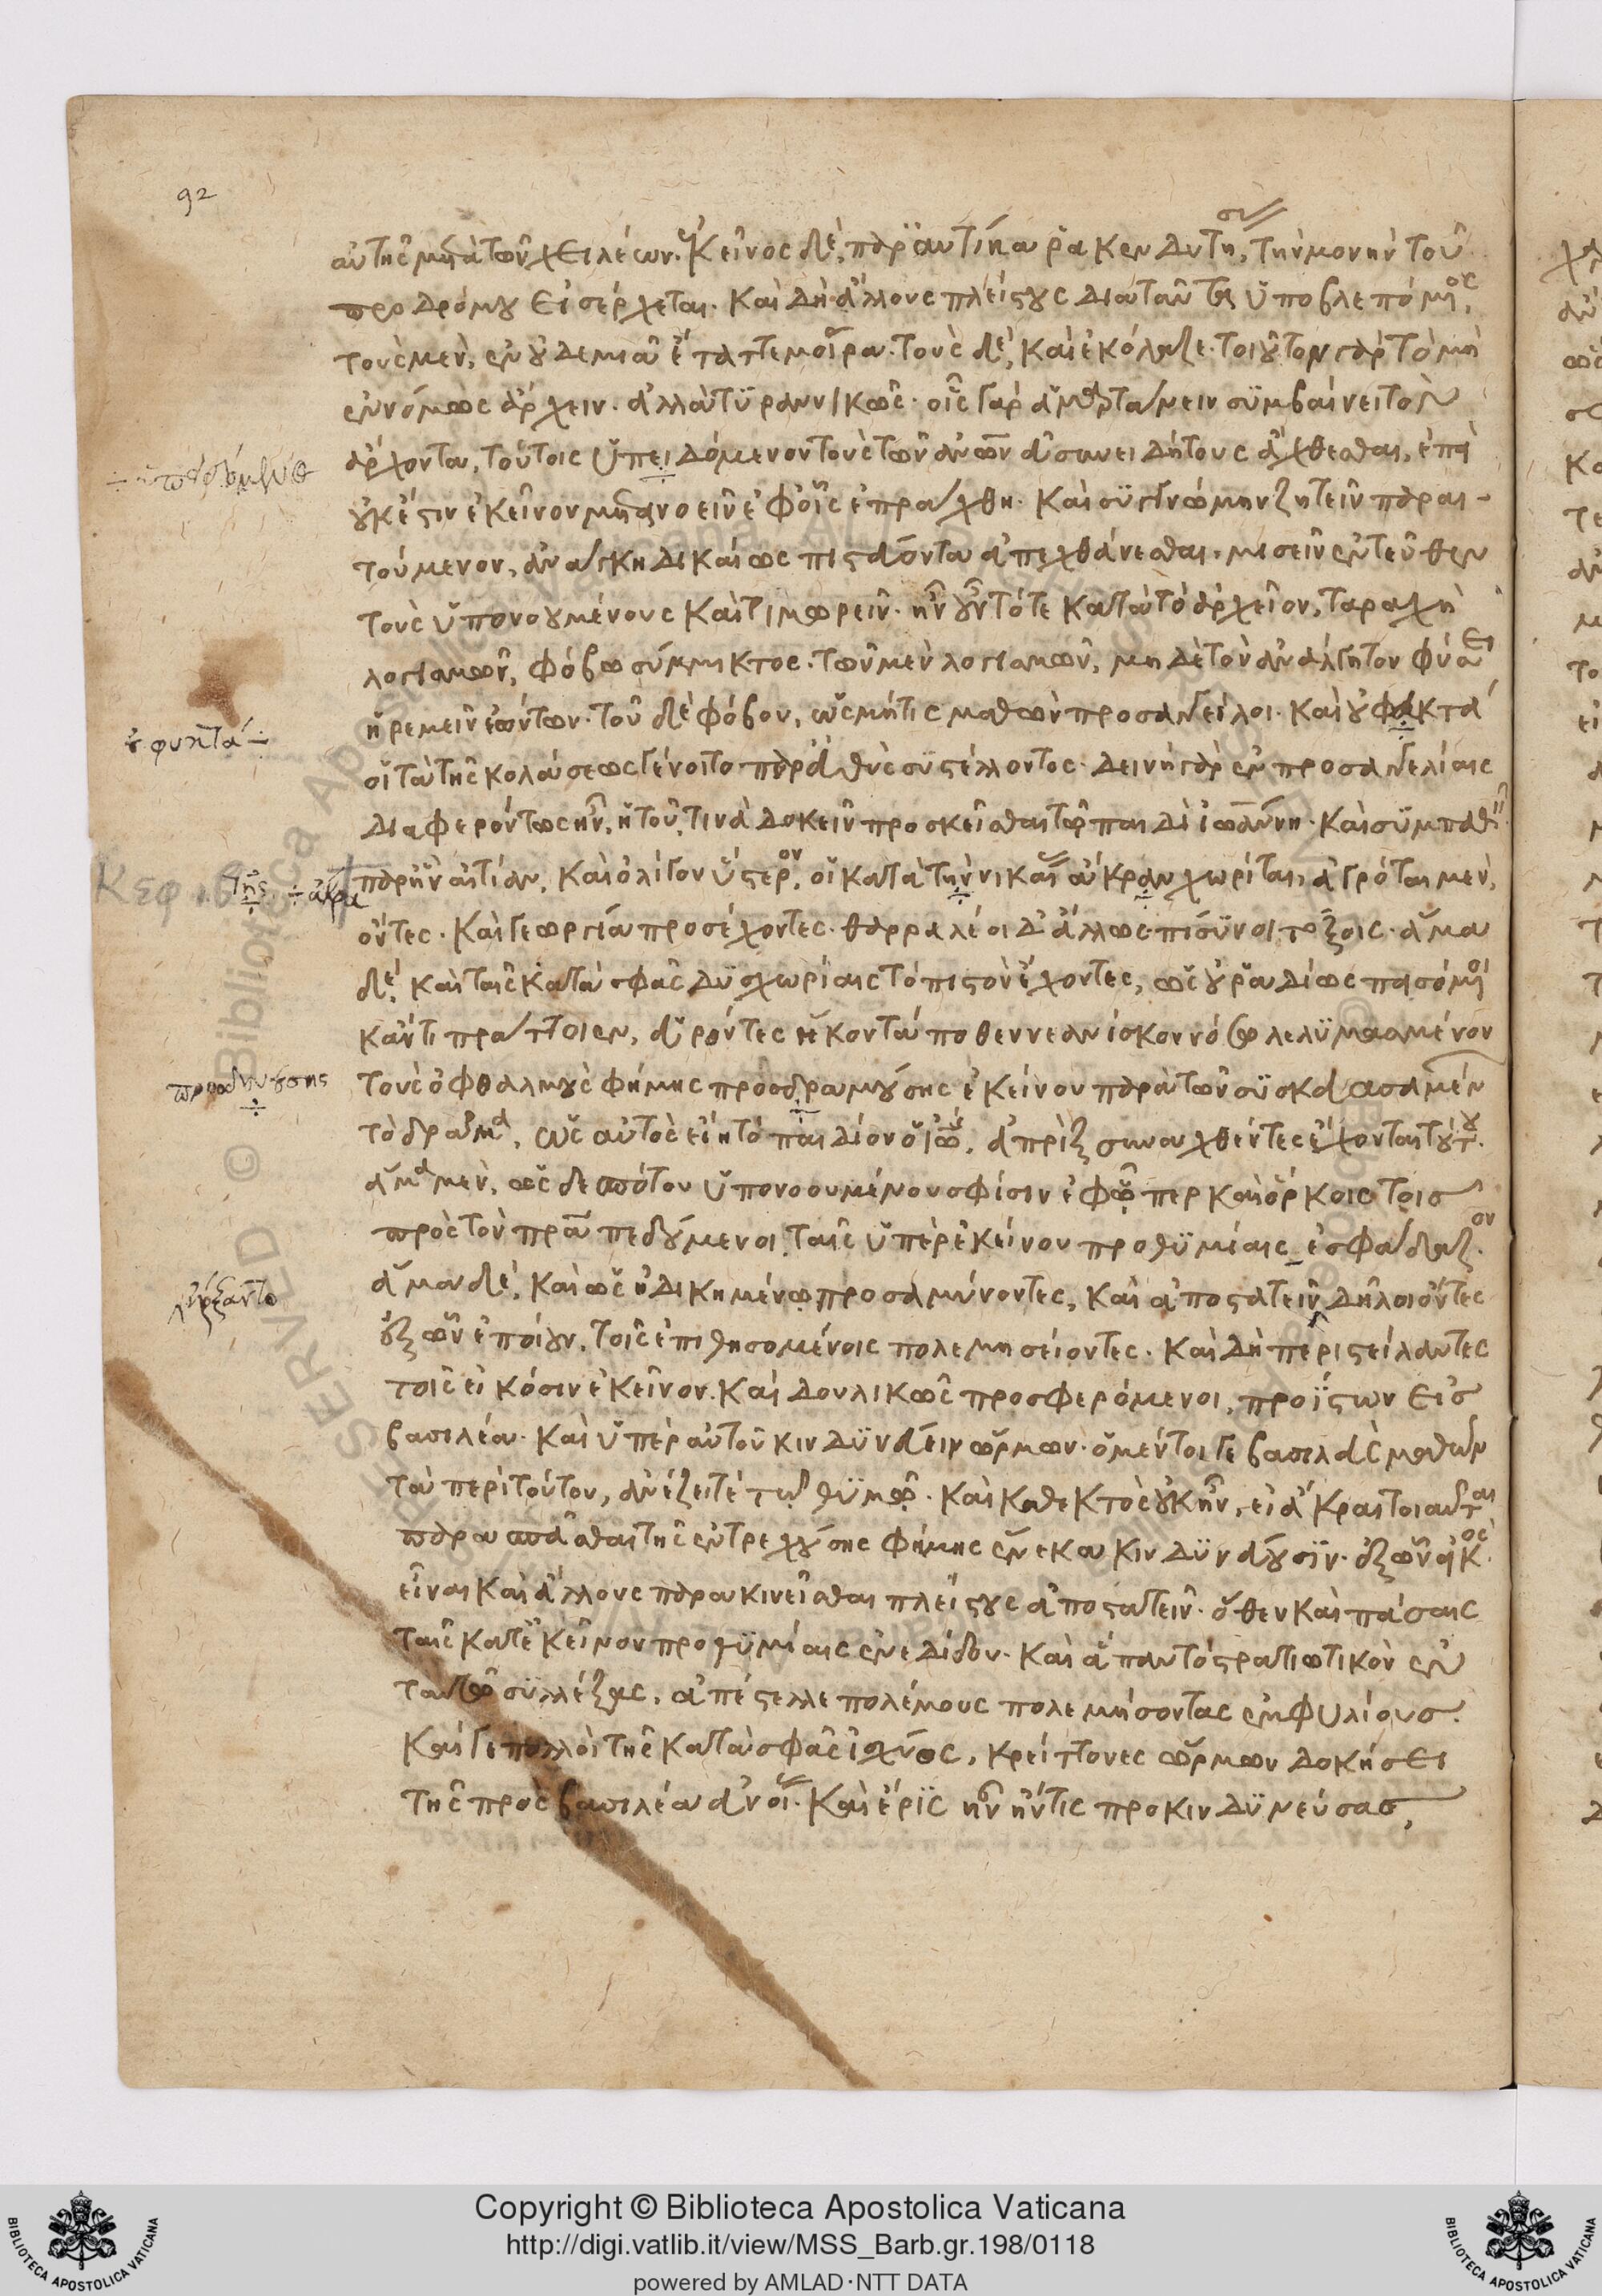 92
αὐτῆς μετὰ τῶν χειλέων. κεῖνος δὲ, παραυτίκα ῥακενδύτης, τὴν μονὴν τοῦ
προδρόμου εἰσέρχεται. καὶ δὴ ἄλλους πλείστους διὰ ταῦτα ὑποβλεπόμενος,
τοὺς μὲν, ἐν οὐδεμιᾷ ἔταττε μοίρᾳ. τοὺς δὲ, καὶ ἐκόλαζε. τοιοῦτον γὰρ τὸ μὴ
ἐννόμως ἄρχειν. ἀλλὰ τυραννικῶς. οἷς γὰρ ἁμαρτάνειν συμβαίνει τὸν
ἄρχοντα, τούτοις ὑπειδόμενον τοὺς τῶν ἀνθρώπων ἀσυνειδήτους ἄχθεσθαι, ἐπεὶ
οὐκ ἔστιν ἐκεῖνον μετανοεῖν ἐφ' οἷς ἐπράχθη. καὶ συγγνώμην ζητεῖν παραι-
τούμενον, ἀνάγκη δικαίως πιστεύοντα ἀπεχθάνεσθαι. μισεῖν ἐντεῦθεν
τοὺς ὑπονοουμένους καὶ τιμωρεῖν. ἦν οὖν τότε κατὰ τὸ ἀρχεῖον, ταραχὴ
λογισμῶν, φόβῳ σύμμικτος. τῶν μὲν λογισμῶν, μηδὲ τὸν ἀνάλγητον φύσει
ἠρεμεῖν ἐώντων. τοῦ δὲ φόβου, ὡς μήτις μαθὼν προσαγγείλοι. καὶ οὐ φυκτὰ
οἱ τὰ τῆς κολάσεως γένοιτο παρευθὺς συστέλλοντος. δεινὴ γὰρ ἐν προσαγγελίαις
διαφερόντως ἦν, ἡ τοῦ τινὰ δοκεῖν προσκεῖσθαι τῷ παιδὶ ἰωάννῃ. καὶ συμπαθεῖν
παρ' ἣν αἰτίαν, καὶ ὀλίγον ὕστερον, οἱ κατὰ τὴν νικαίας ἄκραν χωρῖται, ἀγρόται μὲν,
ὄντες. καὶ γεωργίᾳ προσέχοντες. θαρραλέοι δ' ἄλλως πίσυνοι τόξοις. ἅμα
δὲ, καὶ ταῖς κατὰ σφᾶς δυσχωρίαις τὸ πιστὸν ἔχοντες, ὡς οὐ ῥαδίως πεισόμενοι
κἄν τι πράττοιεν, εὑρόντες ἥκοντά ποθεν νεανίσκον νόσῳ λελυμασμένον
τοὺς ὀφθαλμοὺς φήμης προσδραμούσης ἐκείνου παρὰ τῶν συσκευασαμένων
τὸ δρᾶμα, ὡς αὐτὸς εἴη τὸ παιδίον ὁ ἰωάννης, ἀπρὶξ συναχθέντες ἔχονται τούτου.
ἅμα μὲν, ὡς δεσπότου ὑπονοουμένου σφίσιν ἐφ' ᾧπερ καὶ ὅρκοις τοῖς
πρὸς τὸν πραπεδούμενοι, ταῖς ὑπὲρ ἐκείνου προθυμίαις ἐσφάδαζον.
ἅμα δὲ, καὶ ὡς ἠδικημένῳ προσαμύνοντες, καὶ ἀποστατεῖν δῆλοι ὄντες
ἐξ ὧν ἐποίουν, τοῖς ἐπιθησομένοις πολεμησείοντες. καὶ δὴ περιστείλαντες
τοῖς εἰκόσιν ἐκεῖνον. καὶ δουλικῶς προσφερόμενοι, προΐστων εἰς
βασιλέα. καὶ ὑπὲρ αὐτοῦ κινδυνεύειν ὥρμων. ὁ μέντοι γε βασιλεὺς μαθὼν
τὰ περὶ τούτου, ἀνέζει τε τῷ θυμῷ. καὶ καθεκτὸς οὐκ ἦν, εἰ ἄκραι τοιαῦται
παρασπᾶσθαι τῆς ἐντρεχούσης φήμης ἕνεκα κινδυνεύουσιν. ἐξ ὧν εἰκὸς
εἶναι καὶ ἄλλους παρακινεῖσθαι πλείστους ἀποστατεῖν. ὅθεν καὶ πάσαις
ταῖς κατ' ἐκεῖνον προθυμίαις ἐνεδίδου. καὶ ἅπαν τὸ στρατιωτικὸν ἐν
ταυτῷ συλλέξας, ἀπέστελλε πολέμους πολεμήσοντας ἐμφυλίους.
καί γε πολλοὶ τῆς κατὰ σφᾶς ἰσχύος, κρείττονες ὥρμων δοκήσει
τῆς πρὸς βασιλέα εὐνοίας. καὶ ἔρις ἦν ἥντις προκινδυνεύσας,
φυκτά
τῆς ἄκρα
Copyright © Biblioteca Apostolica Vaticana
http://digi.vatlib.it/view/MSS_Barb.gr.198/0118
powered by AMLAD·NTT DATA
BIBLIOTECA APOSTOLICA VATICANA
BIBLIOTECA APOSTOLICA VATICANA